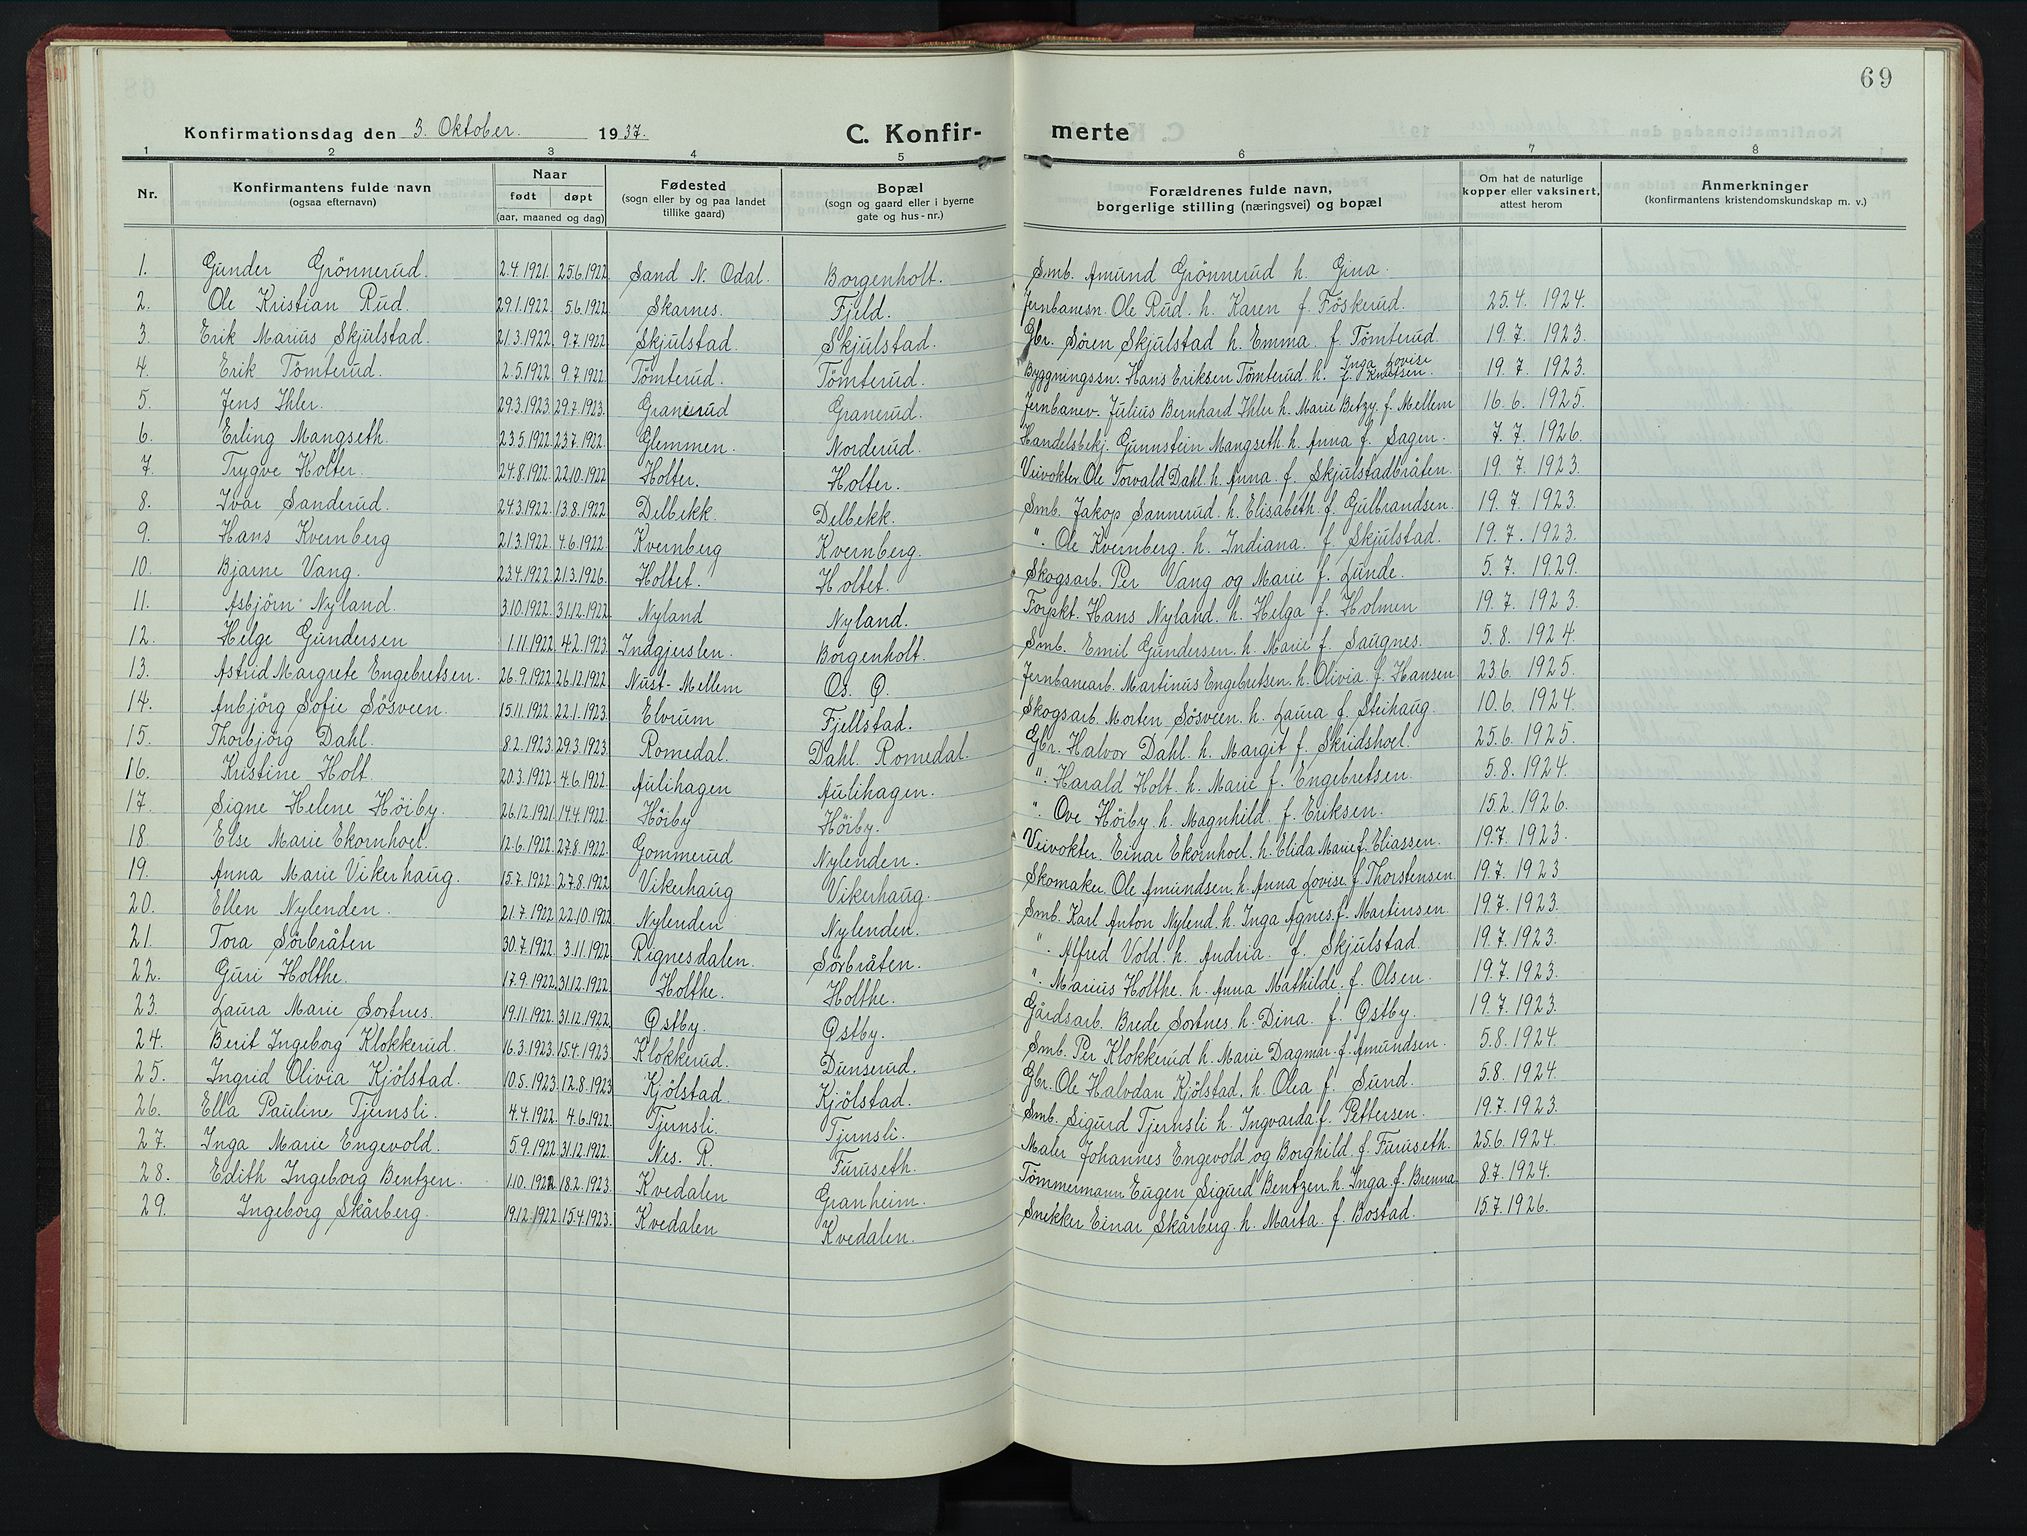 69
Konfirmationsdag den 3. Oktober. 1937. C. Konfir- merte
1 2 3 4 5 6 7 8
Nr. Konfirmantens fulde navn (ogsaa efternavn) Naar født døpt (aar, maaned og dag) Fødested (sogn eller by og paa landet tillike gaard) Bopæl (sogn og gaard eller i byerne gate og hus-nr.) Forældrenes fulde navn, borgerlige stilling (næringsvei) og bopæl Om hat de naturlige kopper eller vaksinert, attest herom Anmerkninger (konfirmantens kristendomskundskap m. v.)
1. Gunder Grönnerud. 2.4.1921. 25.6.1922 Sand N. Odal. Borgenholt. Smb. Amund Grönnerud h. Gina.
2. Ole Kristian Rud. 29.1.1922 5.6.1922 Skarnes. Fjeld. Jernbanesn. Ole Rud. h. Karen f. Föskerud. 25.4. 1924.
3. Erik Marius Skjulstad. 21.3.1922 9.7.1922 Skjulstad. Skjulstad. Gbr. Sören Skjulstad h. Emma. f. Tömterud. 19.7. 1923.
4. Erik Tömterud. 2.5.1922 9.7.1922. Tömterud. Tömterud. Byggningssn. Hans Eriksen Tömterud h. Inga Lovise f. Knutsen. 19.7. 1923.
5. Jens Ihler. 29.3.1923. 29.7.1923. Granerud Granerud. Jernbanev. Julius Bernhard Ihler h. Marie Betzy. f. Mellem 16.6. 1925.
6. Erling Mangseth. 23.5.1922 23.7.1922. Glemmen. Norderud. Handelsbekj. Gunnstein Mangseth. h. Anna f. Sagen. 7.7. 1926.
7. Trygve Holter. 24.8.1922. 22.10.1922 Holter. Holter. Veivokter Ole Torvald Dahl. h. Anna. f. Skjulstadbråten. 19.7. 1923.
8. Ivar Sanderud. 24.3.1922. 13.8.1922 Delbekk. Delbekk. Smb. Jakop Sannerud. h. Elisabeth. f. Gulbrandsen. 19.7. 1923.
9. Hans Kvernberg 21.3.1922. 4.6.1922. Kvernberg Kvernberg. ". Ole Kvernberg. h. Indiana. f. Skjulstad. 19.7. 1923.
10. Bjarne Vang. 23.4.1922. 21.3.1926. Holtet. Holtet. Skogsarb. Per Vang og Marie f. Lunde. 5.7. 1929.
11. Asbjörn Nyland. 3.10.1922. 31.12.1922 Nyland Nyland. Forpkt. Hans Nyland. h. Helga f. Holmen 19.7. 1923.
12. Helge Gundersen 1.11.1922. 4.2.1923. Indgjerslen. Borgenholt. Smb. Emil Gundersen. h. Marie f. Saugnes. 5.8. 1924.
13. Astrid Margrete Engebretsen. 26.9.1922. 26.12.1922 Nust-Mellem Os. Ø. Jernbanearb. Martinus Engebretsen. h. Olivia. f. Hansen 23.6. 1925.
14. Anbjörg Sofie Sösveen. 15.11.1922. 22.1.1923. Elvrum Fjellstad. Skogsarb. Morten Sösveen. h. Laura f. Steihaug. 10.6. 1924.
15. Thorbjörg Dahl. 8.2.1923. 29.3.1923. Romedal. Dahl. Romedal. Gbr. Halvor Dahl. h. Margit f. Skridshoel. 25.6. 1925.
16. Kristine Holt. 20.3.1922. 4.6.1922. Aulihagen Aulihagen. ". Harald Holt. h. Marie f. Engebretsen. 5.8. 1924.
17. Signe Helene Höiby. 26.12.1921 14.4.1922. Höiby Höiby. ". Ove Höiby h. Magnhild. f. Eriksen. 15.2. 1926.
18. Else Marie Ekornhoel. 12.6.1922. 27.8.1922. Gommerud Nylenden. Veivokter. Einar Ekornhoel. h. Elida Marie f. Eliassen. 19.7. 1923.
19. Anna Marie Vikerhaug. 15.7.1922. 27.8.1922 Vikerhaug Vikerhaug. Skomaker Ole Amundsen. h. Anna Lovise. f. Thorstensen 19.7. 1923
20. Ellen Nylenden. 21.7.1922. 22.10.1922 Nylenden Nylenden. Smb. Karl Anton Nylend. h. Inga Agnes. f. Martinsen. 19.7. 1923.
21. Tora Sörbråten 30.7.1922. 3.11.1922 Rignesdalen. Sörbråten. ". Alfred Vold. h. Andria. f. Skjulstad 19.7. 1923.
22. Guri Holthe. 17.9.1922. 31.12.1922 Holthe. Holthe. ". Marius Holthe. h. Anna Mathilde. f. Olsen. 19.7. 1923.
23. Laura Marie Sortnes. 19.11.1922. 31.12.1922 Østby. Østby. Gårdsarb. Brede Sortnes. h. Dina. f. Østby. 19.7. 1923.
24. Berit Ingeborg Klokkerud. 16.3.1923. 15.4.1923. Klokkerud. Dunserud. Smb. Per Klokkerud h. Marie Dagmar. f. Amundsen. 5.8. 1924.
25. Ingrid Olivia Kjölstad. 10.5.1923. 12.8.1923 Kjölstad. Kjölstad. Gbr. Ole Halvdan Kjölstad. h. Olea f. Sund. 5.8. 1924.
26. Ella Pauline Tjernsli. 4.4.1922. 4.6.1922. Tjernsli. Tjernsli. Smb. Sigurd Tjernsli h. Ingvarda f. Pettersen. 19.7. 1923.
27. Inga Marie Engevold. 5.9.1922 31.12.1922. Nes. R. Furuseth. Maler Johannes Engevold og Borghild. f. Furuseth. 25.6. 1924.
28. Edith Ingeborg Bentzen. 1.10.1922 18.2.1923. Kvedalen Granheim. Tömmermann Eugen Sigurd Bentzen. h. Inga. f. Brenna 8.7. 1924.
29. Ingeborg Skårberg. 19.12.1922 15.4.1923. Kvedalen Kvedalen. Snekker Einar Skårberg. h. Marta. f. Bostad. 15.7. 1926.